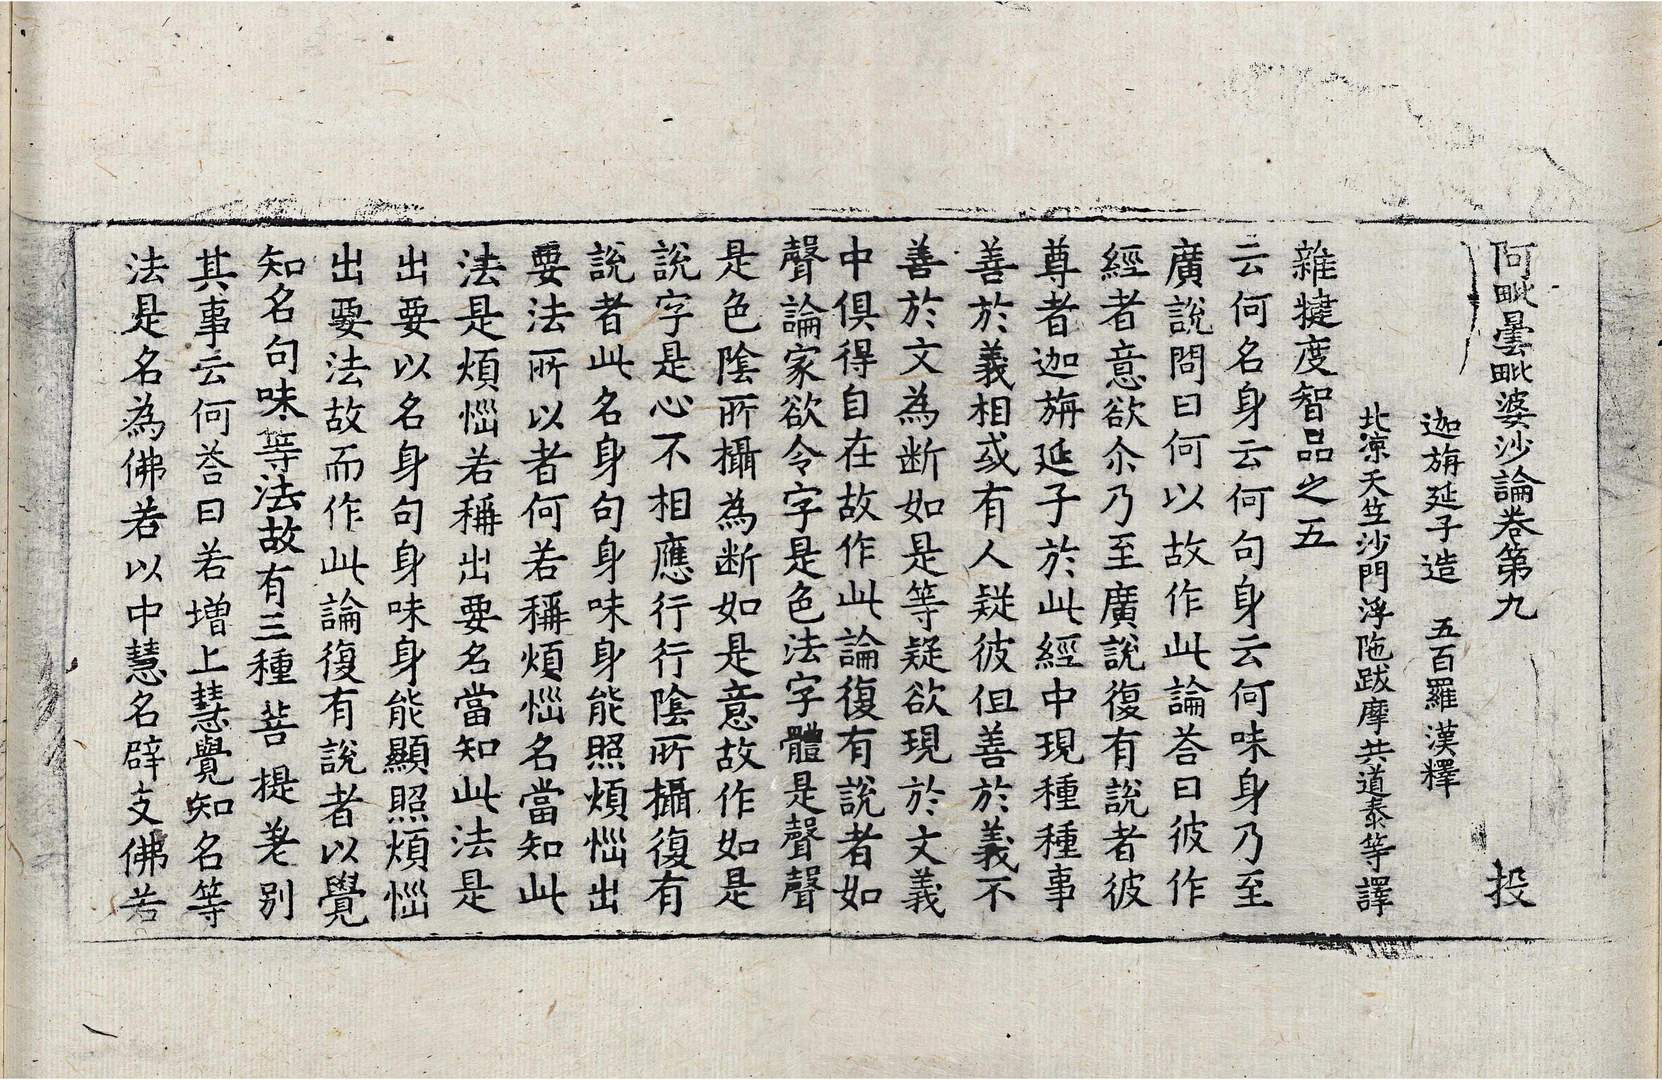 阿毗曇毗婆沙論卷第九 投
迦旃延子造 五百羅漢釋
北涼天竺沙門浮陁跋摩共道泰等譯
雜揵度智品之五
云何名身云何句身云何味身乃至
廣說問曰何以故作此論荅曰彼作
經者意欲尒乃至廣說復有說者彼
尊者迦旃延子於此經中現種種事
善於義相或有人疑彼但善於義不
善於文為断如是等疑欲現於文義
中俱得自在故作此論復有說者如
聲論家欲令字是色法字體是聲聲
是色陰所攝為断如是意故作如是
說字是心不相應行行陰所攝復有
說者此名身句身味身能照煩惱出
要法所以者何若稱煩惱名當知此
法是煩惱若稱出要名當知此法是
出要以名身句身味身能顯照煩惱
出要法故而作此論復有說者以覺
知名句味等法故有三種菩提差別
其事云何荅曰若增上慧覺知名等
法是名為佛若以中慧名辟支佛若